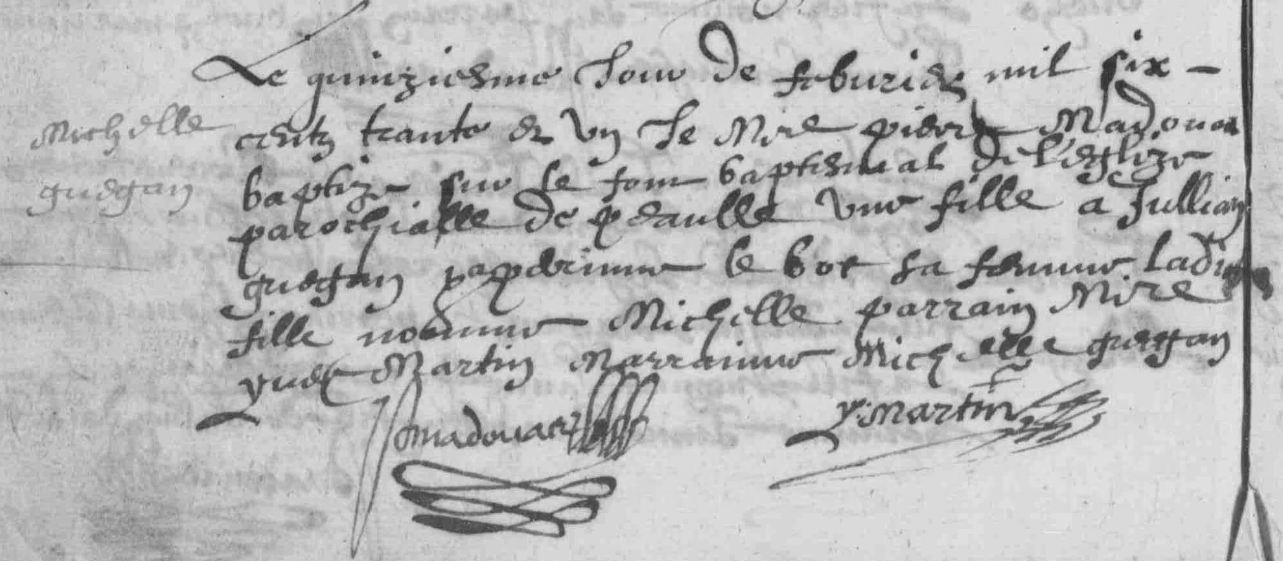 Michelle
guegan
Le quinziesme Jour de feburier mil six
centz trante et un Je Mire pierre Madouar
baptize sur le fons baptismal de l'eglize
parochialle de peaulle une fille a Jullian
guegan perinne le bot sa femme Ladite
fille nommee Michelle parrain Mire
yues Martin Marrainne Michelle guegan
Madouar
y. Martin